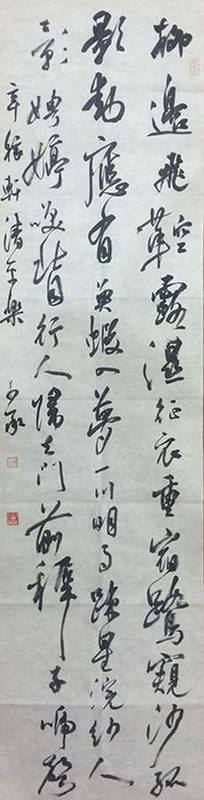 柳邊飛鞚露濕征衣重宿鷺窺沙孤
影動應有魚蝦入夢一川明月疎星浣紗人
影娉婷笑背行人歸去門前稺子啼聲
辛稼軒清平樂